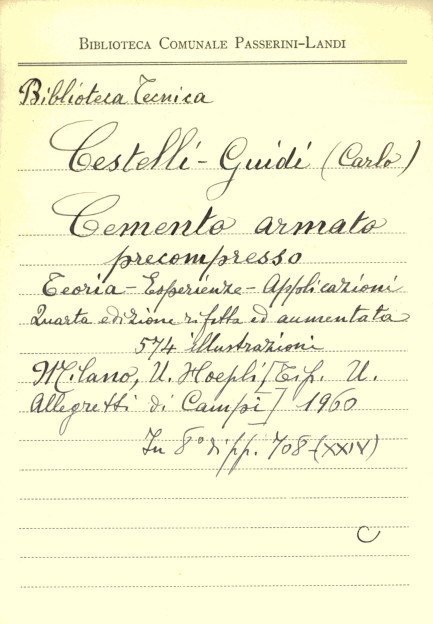 BIBLIOTECA COMUNALE PASSERINI-LANDI
Biblioteca Tecnica
Cestelli-Guidi (Carlo)
Cemento armato
precompresso
Teoria - Esperienze - Applicazioni
Quarta edizione rifatta ed aumentata
574 illustrazioni
Milano, U. Hoepli [Tip. U.
Allegretti di Campi] 1960
In 8° di pp. 708-(XXIV)
C